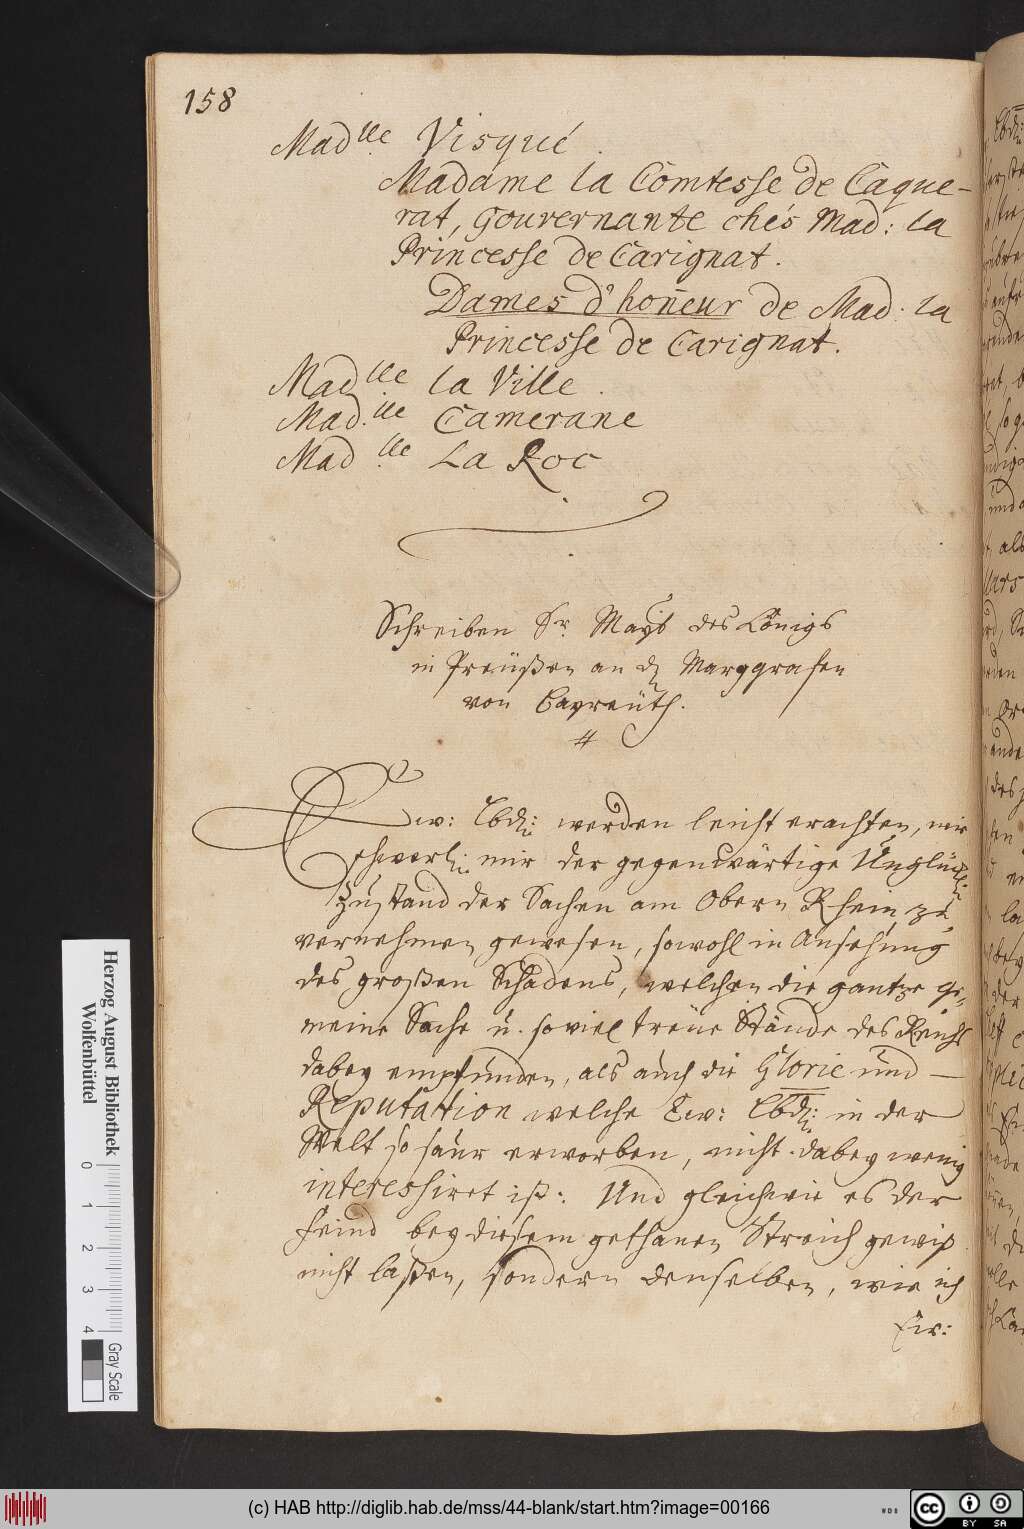 158
Mad.lle Visqué.
Madame la Comtesse de Caque-
rat, Gouvernante chés Mad: la
Princesse de Carignat.
Dames d'hoñeur de Mad: la
Princesse de Carignat.
Mad.lle la Ville.
Mad.lle Camerane
Mad.lle La Roc
Schreiben Sr. Mayt des Königs
in Preüßen an d Marggrafen
von Bayreüth.
#
Ew: Lbd: werden leicht erachten, wie
schmertzl: mir der gegenwärtige Unglückl:
Zustand der Sachen am Obern Rhein zu
vernehmen gewesen, sowohl in Ansehung
des großen Schadens, welchen die gantze ge-
meine Sache u. so viel treüe Stände des Reichs
dabey empfunden, als auch die Glorie und
Reputation welche Ew: Lbd: in der
Welt so saur erworben, nicht dabey wenig
interessiret ist: Und gleichwie es der
Feind bey diesem gethanen Streich gewiß
nicht laßen, sondern denselben, wie ich
Ew:
Herzog August Bibliothek
Wolfenbüttel
0 1 2 3 4
Gray Scale
(c) HAB http://diglib.hab.de/mss/44-blank/start.htm?image=00166
WDB
cc BY SA